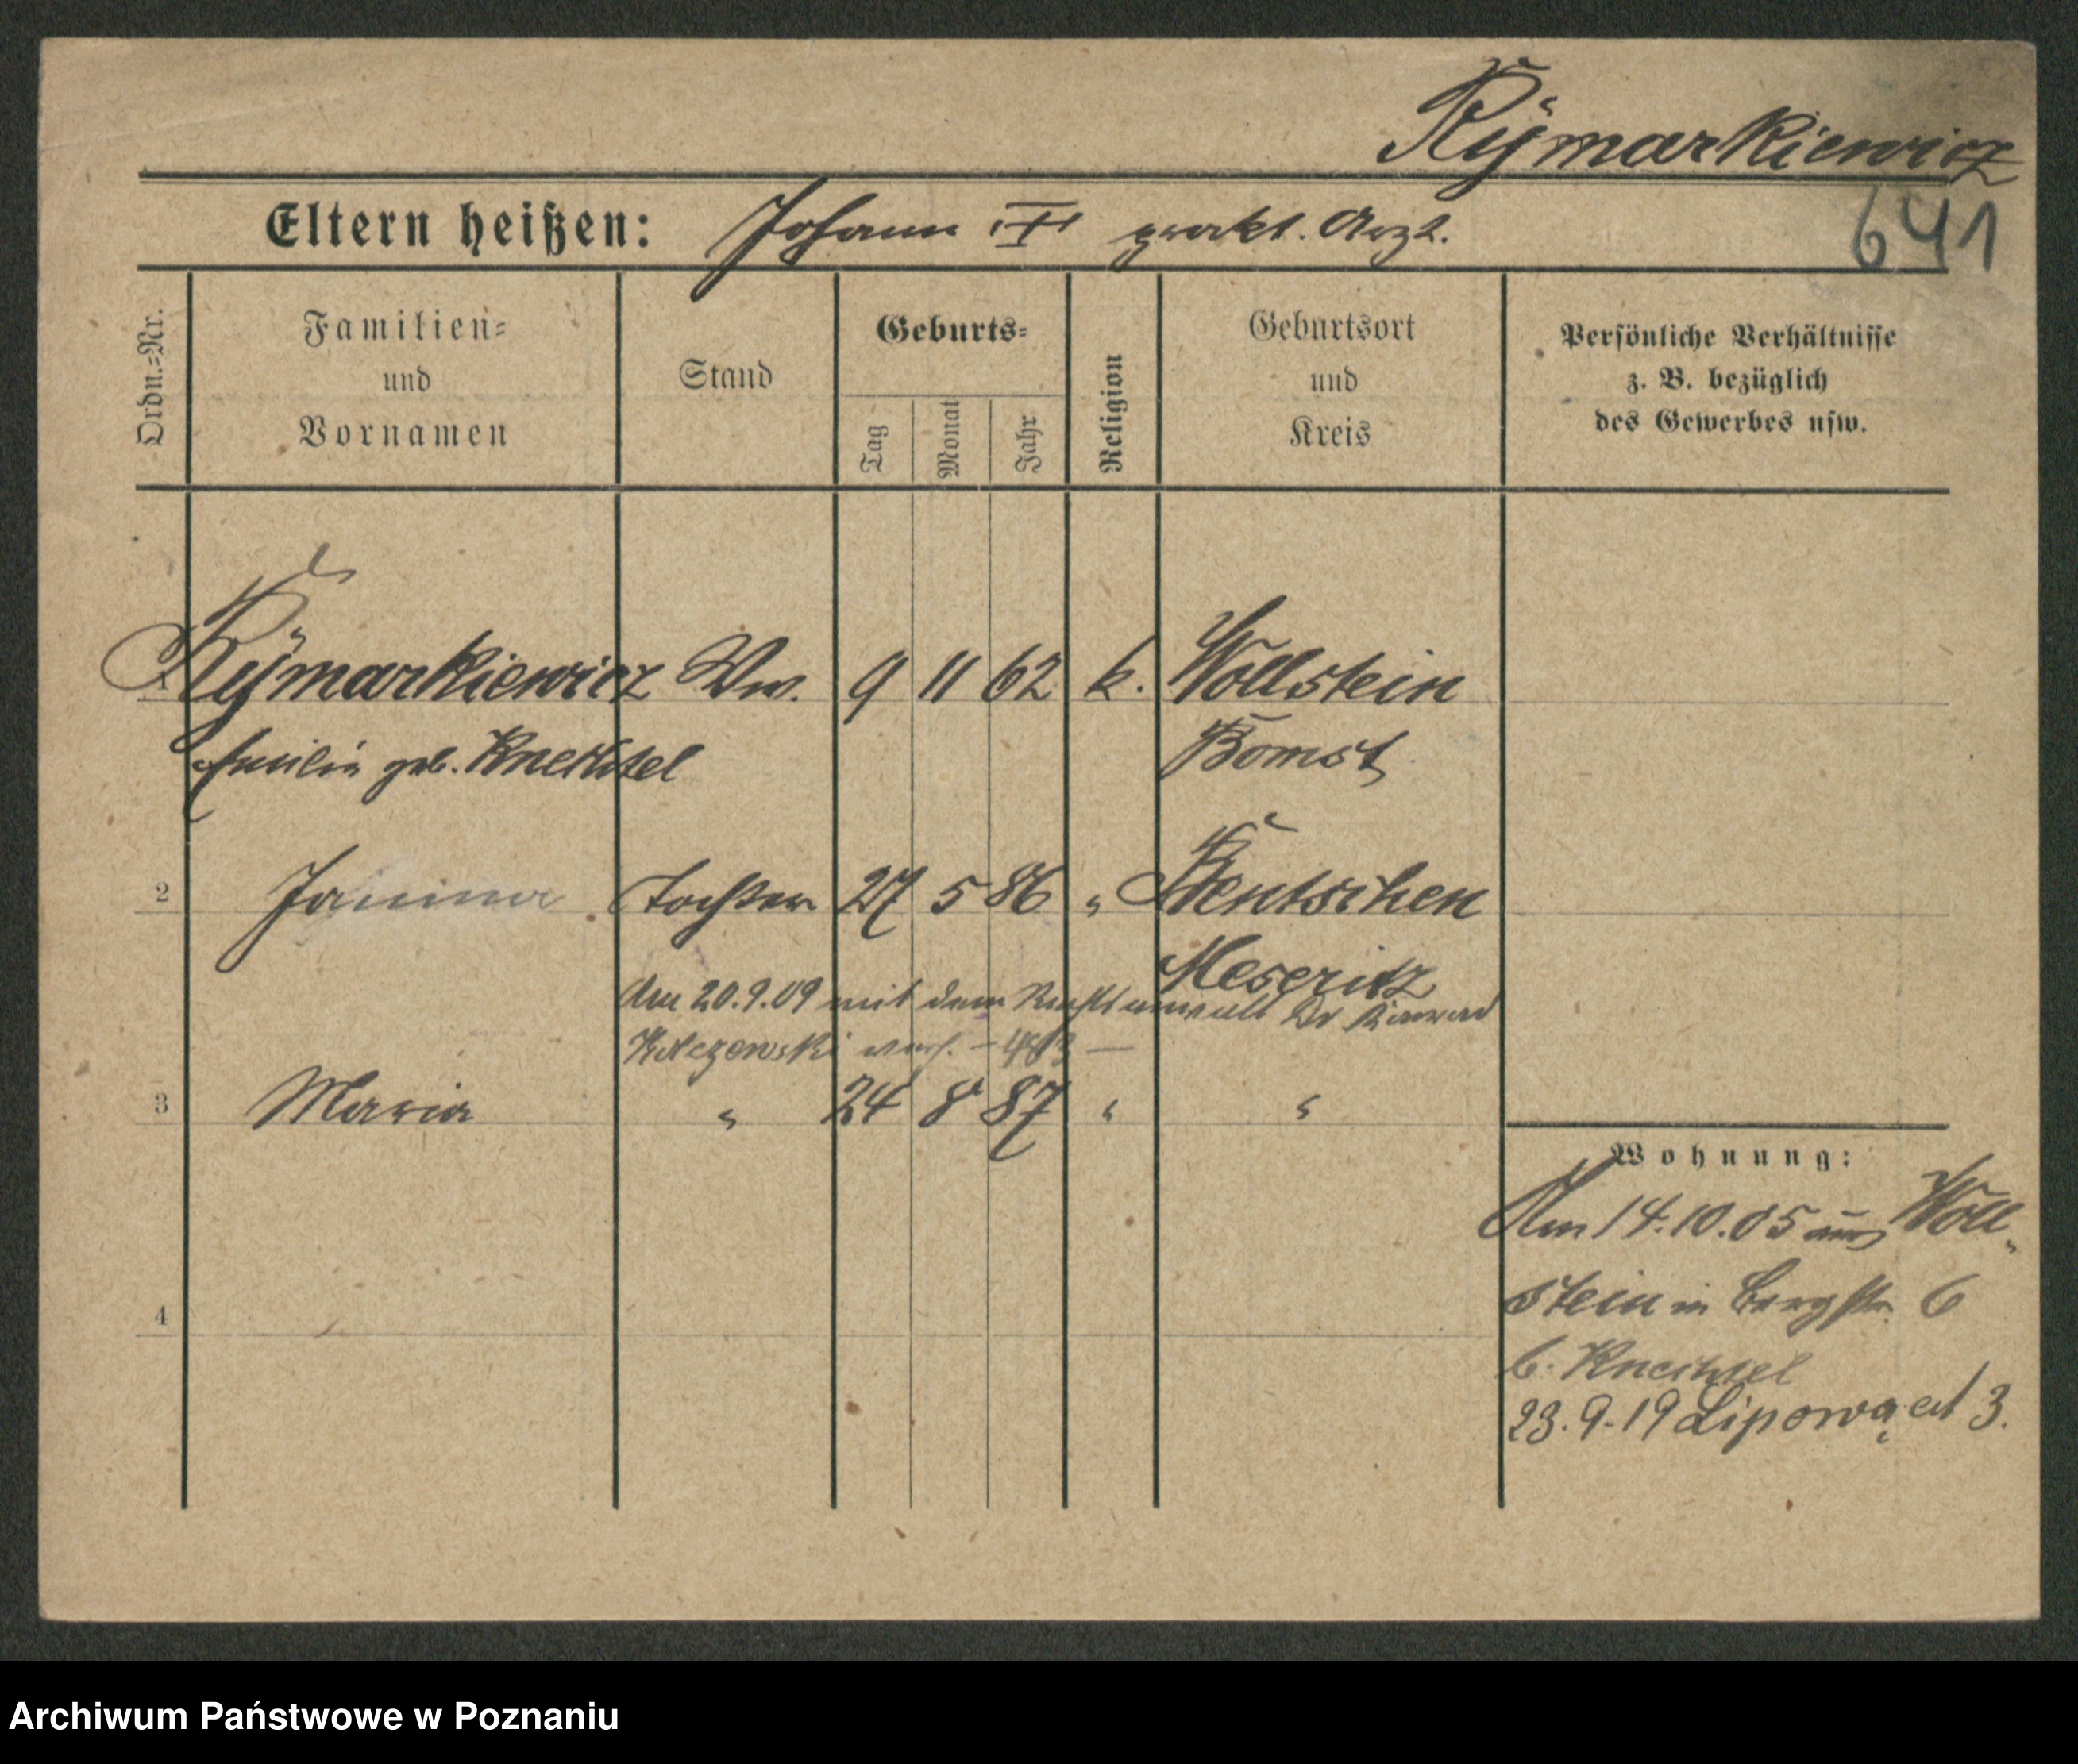 Rÿmarkiewicz
641
Eltern heißen: Johann prakt. Arzt.
Ordn.-Nr.
Familien-
und
Vornamen
Stand
Geburts-
Tag
Monat
Jahr
Religion
Geburtsort
und
Kreis
Persönliche Verhältnisse
z. B. bezüglich
des Gewerbes usw.
1 Rÿmarkiewicz Ww. 9 11 62 k. Wollstein
Emilia geb. Knechtel Bomst
2 Janina Tochter 27 5 86 " Bentschen
Meseritz
Am 20.9.09 mit dem Rechtsanwalt Dr
verh.
3 Maria " 24 8 87 " "
4
Wohnung:
Am 14.10.05 aus Woll-
stein in Bergstr. 6
b. Knechtel
23.9.19 Lipowa 3.
Archiwum Państwowe w Poznaniu